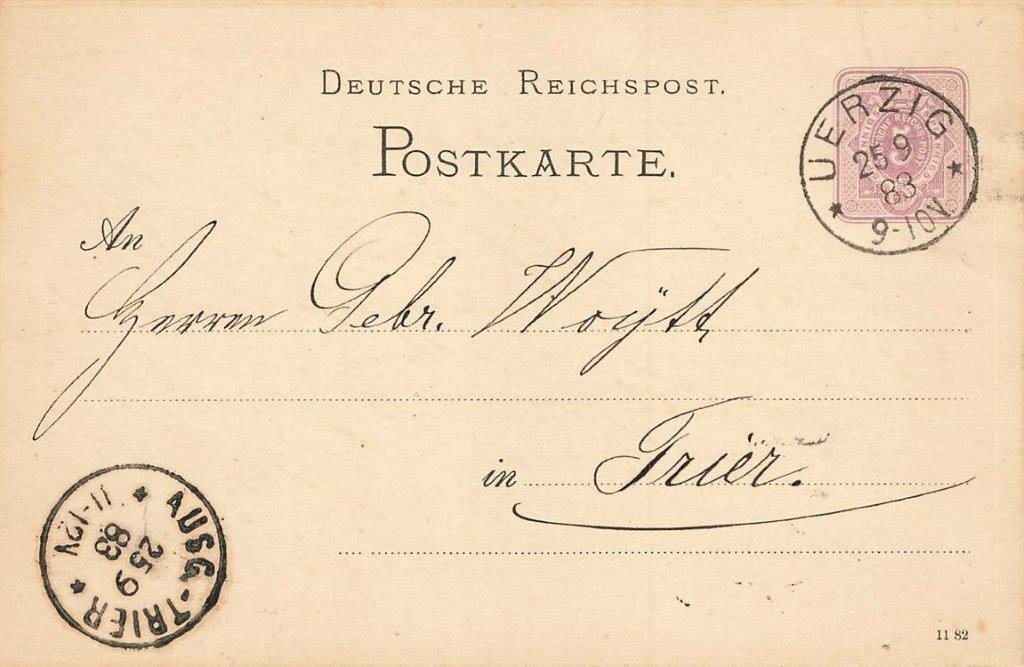 DEUTSCHE REICHSPOST.
POSTKARTE.
UERZIG
25 9
83
9-10V
An
Herren Gebr. Woÿtt
in Trier.
AUSG.-TRIER
25 9
83
11-12V
11 82